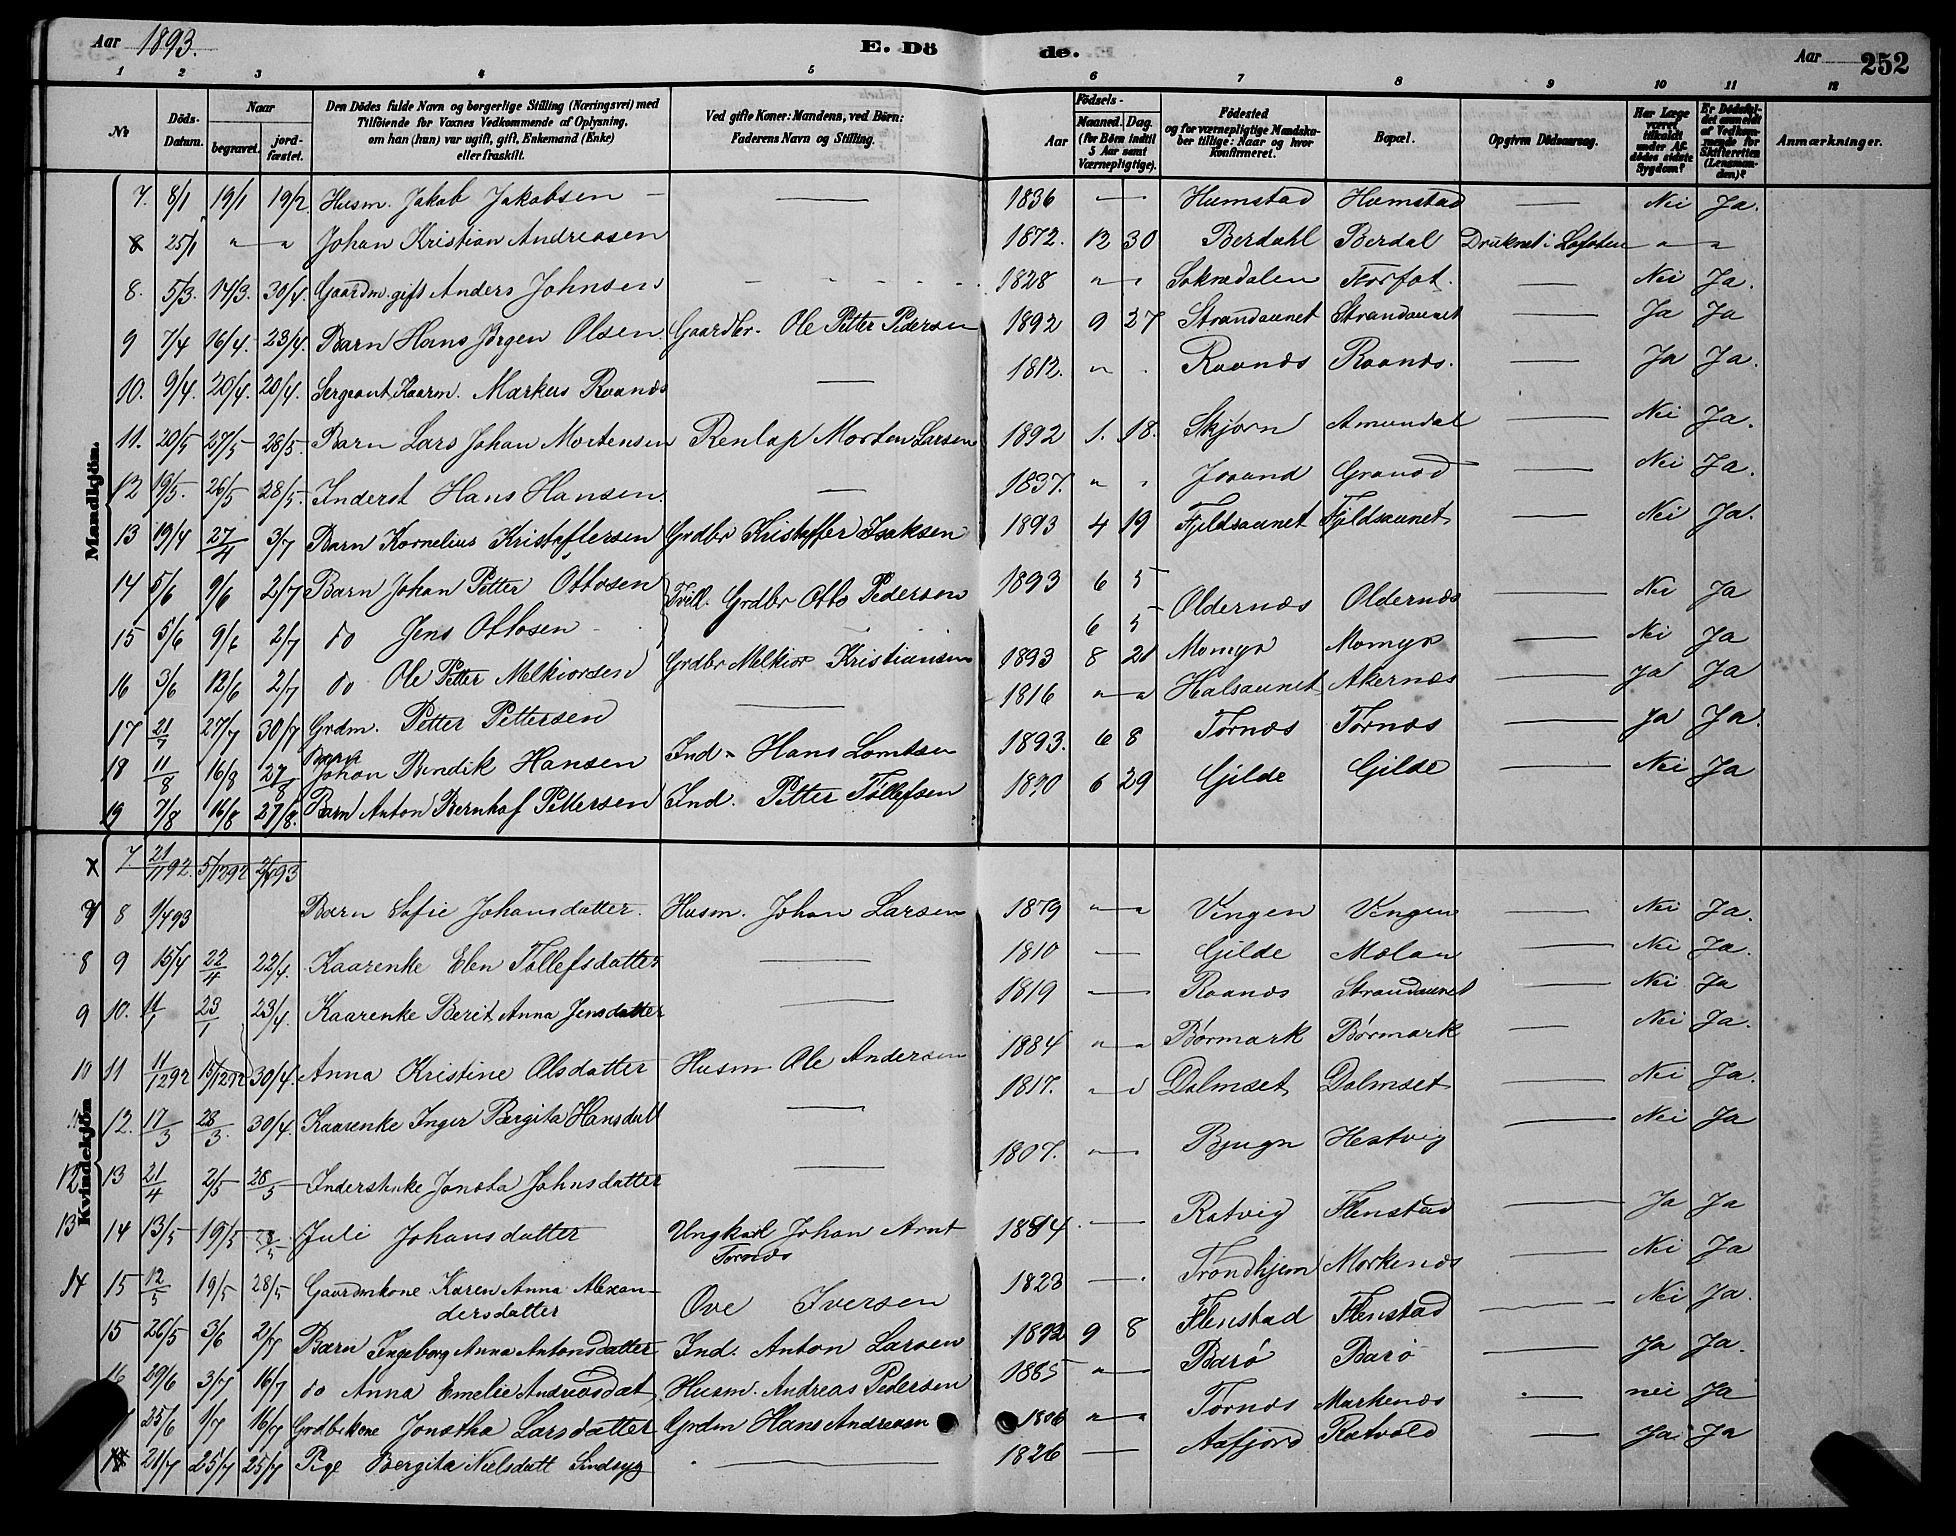 Aar 1893. E. Dö de. Aar 252
1 2 3 4 5 6 7 8 9 10 11 12
No Döds-Datum. Naar begravet. jord-fæstet. Den Dödes fulde Navn og borgerlige Stilling (Næringsvei) med Tilföiende for Voxnes Vedkommende af Oplysning, om han (hun) var ugift, gift, Enkemand (Enke) eller fraskilt. Ved gifte Koner: Mandens, ved Börn: Faderens Navn og Stilling. Födsels- Aar Maaned. Dag. (for Börn indtil 5 Aar samt Værnepligtige). Födested og for værnepligtige Mandskaber tillige: Naar og hvor konfirmeret. Bopæl. Opgiven Dödsaarsag. Har Læge været tilkaldt under Afdödes sidste Sygdom? Er Dödsfaldet anmeldt af Vedkommende for Skifteretten (Lensmanden)? Anmærkninger.
Mandkjön.
7. 8/1 19/1 19/2 Husm. Jakob Jakobsen — — 1836 — Humstad Humstad — Nei Ja.
8 25/1 " — " Johan Kristian Andreasen 1872. 12 30 Berdahl Berdal Druknet i Lofoten " — "
8. 5/3. 14/3. 30/4. Gaardm. gift Anders Johnsen 1828 " — " Sokndalen Storfot. — Nei Ja.
9 7/4 16/4. 23/4. Barn Hans Jørgen Olsen Gaardbr. Ole Petter Pedersen 1892 9 27 Strandaunet Strandaunet — Ja Ja
10. 9/4. 20/4. 20/4. Sergeant, Kaarm. Markus Raanæs — 1812. " Raanæs Raanæs. — Ja Ja.
11. 20/5 27/5 28/5. Barn Lars Johan Mortensen Renlap Morten Larsen 1892 1. 18. Skjørn Amundal — Nei Ja.
12 19/5. 26/5 28/5. Inderst Hans Hansen. — 1837. " Josund Granod — Nei Ja.
13 19/4 27/4 3/7 Barn Kornelius Kristoffersen Grdbr Kristoffer Isaksen 1893 4 19 Fjeldsaunet Fjeldsaunet — Nei Ja.
14 5/6 9/6 2/7 Barn Johan Petter Ottosen Tvill. Grdbr Otto Pedersen 1893 6 5 Oldernæs Oldernæs — Nei Ja
15 5/6 9/6 2/7 do Jens Ottosen 6 5 — Nei Ja
16 3/6 12/6 2/7 do Ole Petter Melkiorsen Grdbr Melkior Kristiansen 1893 8 21 Momyr Momyr Ja Ja
17 21/7 27/7 30/7 Grdm. Petter Pettersen — 1816 " — " Halsaunet Akernes — Ja Ja.
18 11/8 16/8 27/8 Barn Johan Bendik Hansen Ind. Hans Lorntsen 1893. 6 8 Tørnæs Tørnæs — Nei Ja
19 7/8 16/8 27/8. Barn Anton Bernhof Pettersen Ind. Petter Tollefsen 1890 6 29 Gjilde Gjilde
Kvindekjön
x 7. 21/1192. 5/1292
8 1/493 Barn Sofie Johansdatter. Husm. Johan Larsen 1879 " — " Vingen Vingen — Nei Ja.
8 9 15/4 22/4 22/4. Kaarenke Elen Tollefsdatter — 1810 — Gjilde Mælan — Nei Ja.
9 10. 11/1 23/1 23/4. Kaarenke Berit Anna Jensdatter — 1819 — Raanæs Strandaunet — Nei. Ja
10 11 11/1292 15/1292 30/4. Anna Kristine Olsdatter Husm. Ole Andersen 1884 " — " Børmark Børmark — Nei Ja.
12. 17/3 28/3. 30/4. Kaarenke Inger Bergita Hansdatt — 1817. Dalmset Dalmset — Nei Ja.
12 13 21/4 2/5 28/5 Inderstenke Jonæta Johnsdatter — 1807. " — Bjugn Hestvig — Nei Ja
13 14 13/5 19/5 28/5 Juli Johansdatter Ungkarl Johan Arnt Tørnæs — Ratvig Flenstad — Ja Ja
14 15 12/5 19/5 28/5 Gaardmkone Karen Anna Alexan-
dersdatter Ove Iversen 1823 — Trondhjem Morkenæs — Nei Ja
15 26/5 3/6 2/7 Barn Ingeborg Anna Antonsdatter Ind. Anton Larsen 1892 9 8 Flenstad Flenstad — Nei Ja.
16 29/6 3/7 16/7 do Anna Emelie Andreasdat Husm. Andreas Pedersen 1885 " — Barø Barø — Ja Ja.
25/6 1/7 16/7 Grdbrkone Jonetha Larsdatter Grdm Hans Andreasen 1806 " — " Tørnæs Markenæs — nei Ja
21/7 25/7 25/7 Pige Bergita Nielsdatt Sindsyg — 1826 — Aafjord Ratvold — Ja Ja